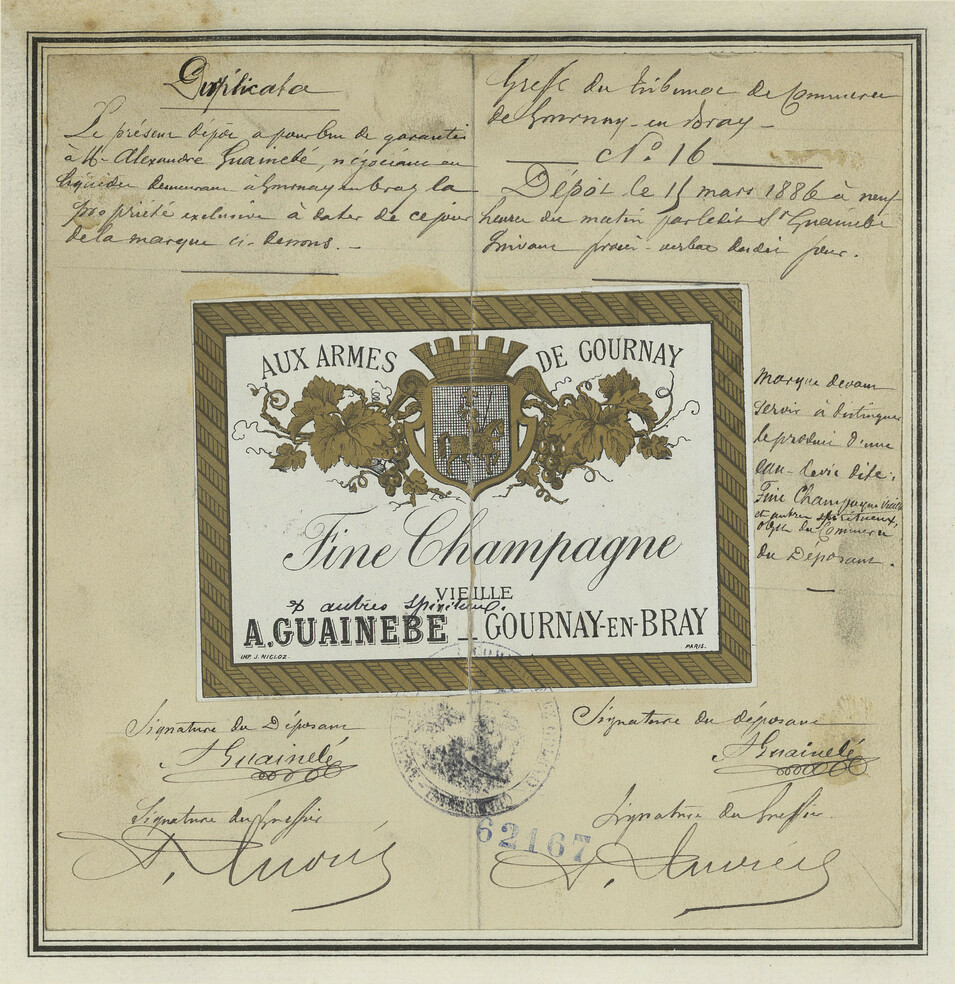 Duplicata
Le présent dépôt a pour but de garantir
à M. Alexandre Guainebé, négociant en
liquides demeurant à Gournay en bray la
propriété exclusive à dater de ce jour
de la marque ci-dessous. -
Greffe du tribunal de Commerce
de Gournay-en Bray -
N° 16
Dépôt le 15 mars 1886 à neuf
heures du matin par ledit Sr Guainebé
suivant procès-verbal dudit jour.
AUX ARMES DE GOURNAY
Fine Champagne
VIEILLE
& autres spiritueux.
A. GUAINEBÉ _ GOURNAY-EN-BRAY
IMP. J. NICLOZ. PARIS.
Marque devant
servir à distinguer
le produit d'une
eau-de vie dite:
Fine Champagne vieille
et autres spiritueux,
objet du Commerce
du Déposant.
Signature du Déposant
AGuainebé
Signature du déposant
AGuainebé
Signature du Greffier
Signature du Greffier
62167